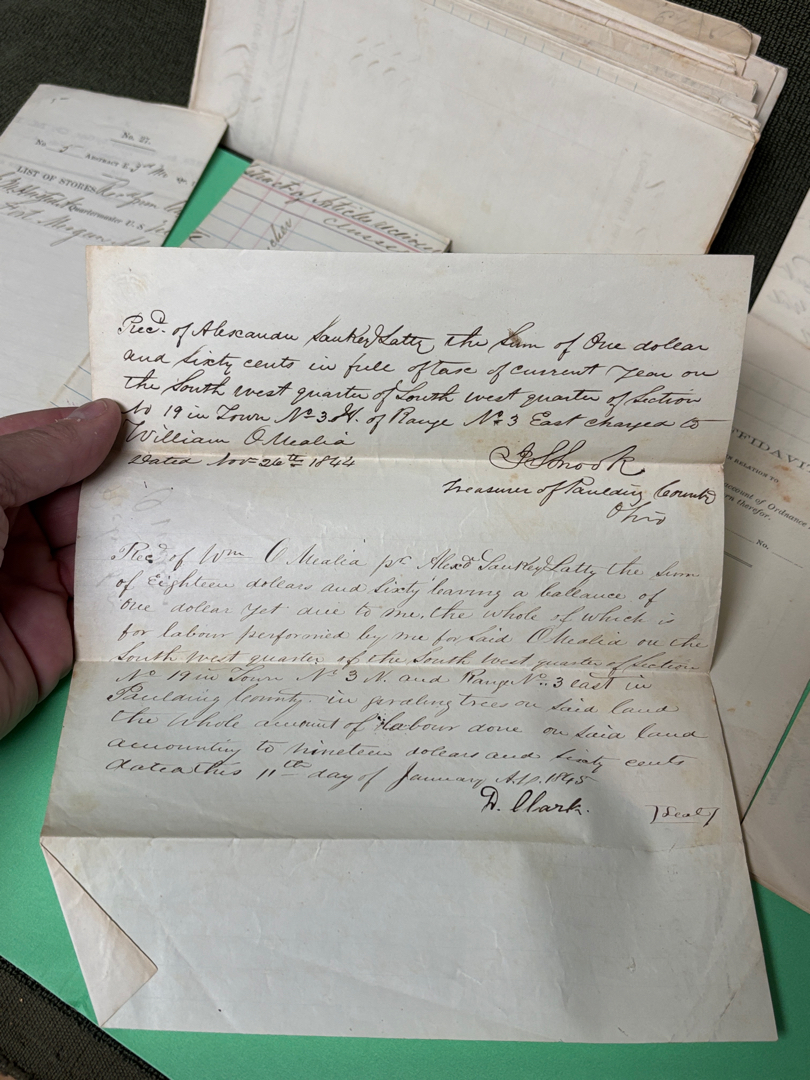 No. 27.
No. 5 Abstract E 3rd
LIST OF STORES Rec'd from
Quartermaster U. S.
Fort
Abstract of Articles
Rec.d of Alexander Sankey Latty the Sum of One dollar
and Sixty cents in full of tax of current Year on
the South west quarter of South west quarter of Section
No 19 in Town No 3 N. of Range No 3 East charged to
William O Mealia
Dated Nov 26th 1844
Treasurer of Paulding County
Ohio
Rec.d of Wm O Mealia pr Alexd Sankey Latty the Sum
of Eighteen dollars and Sixty leaving a ballance of
one dollar Yet due to me. the whole of which is
for labour performed by me for Said O Mealia on the
South West quarter of the South West quarter of Section
No 19 in Town No 3 N. and Range No. 3 east in
Paulding County. in girdling trees on Said land
the whole amount of labour done on Said land
amounting to nineteen dollars and Sixty cents
dated this 11th day of January A.D. 1845
D. Clark. [Seal]
FFIDAVIT
RELATION TO
account of Ordnance
therefor.
No.